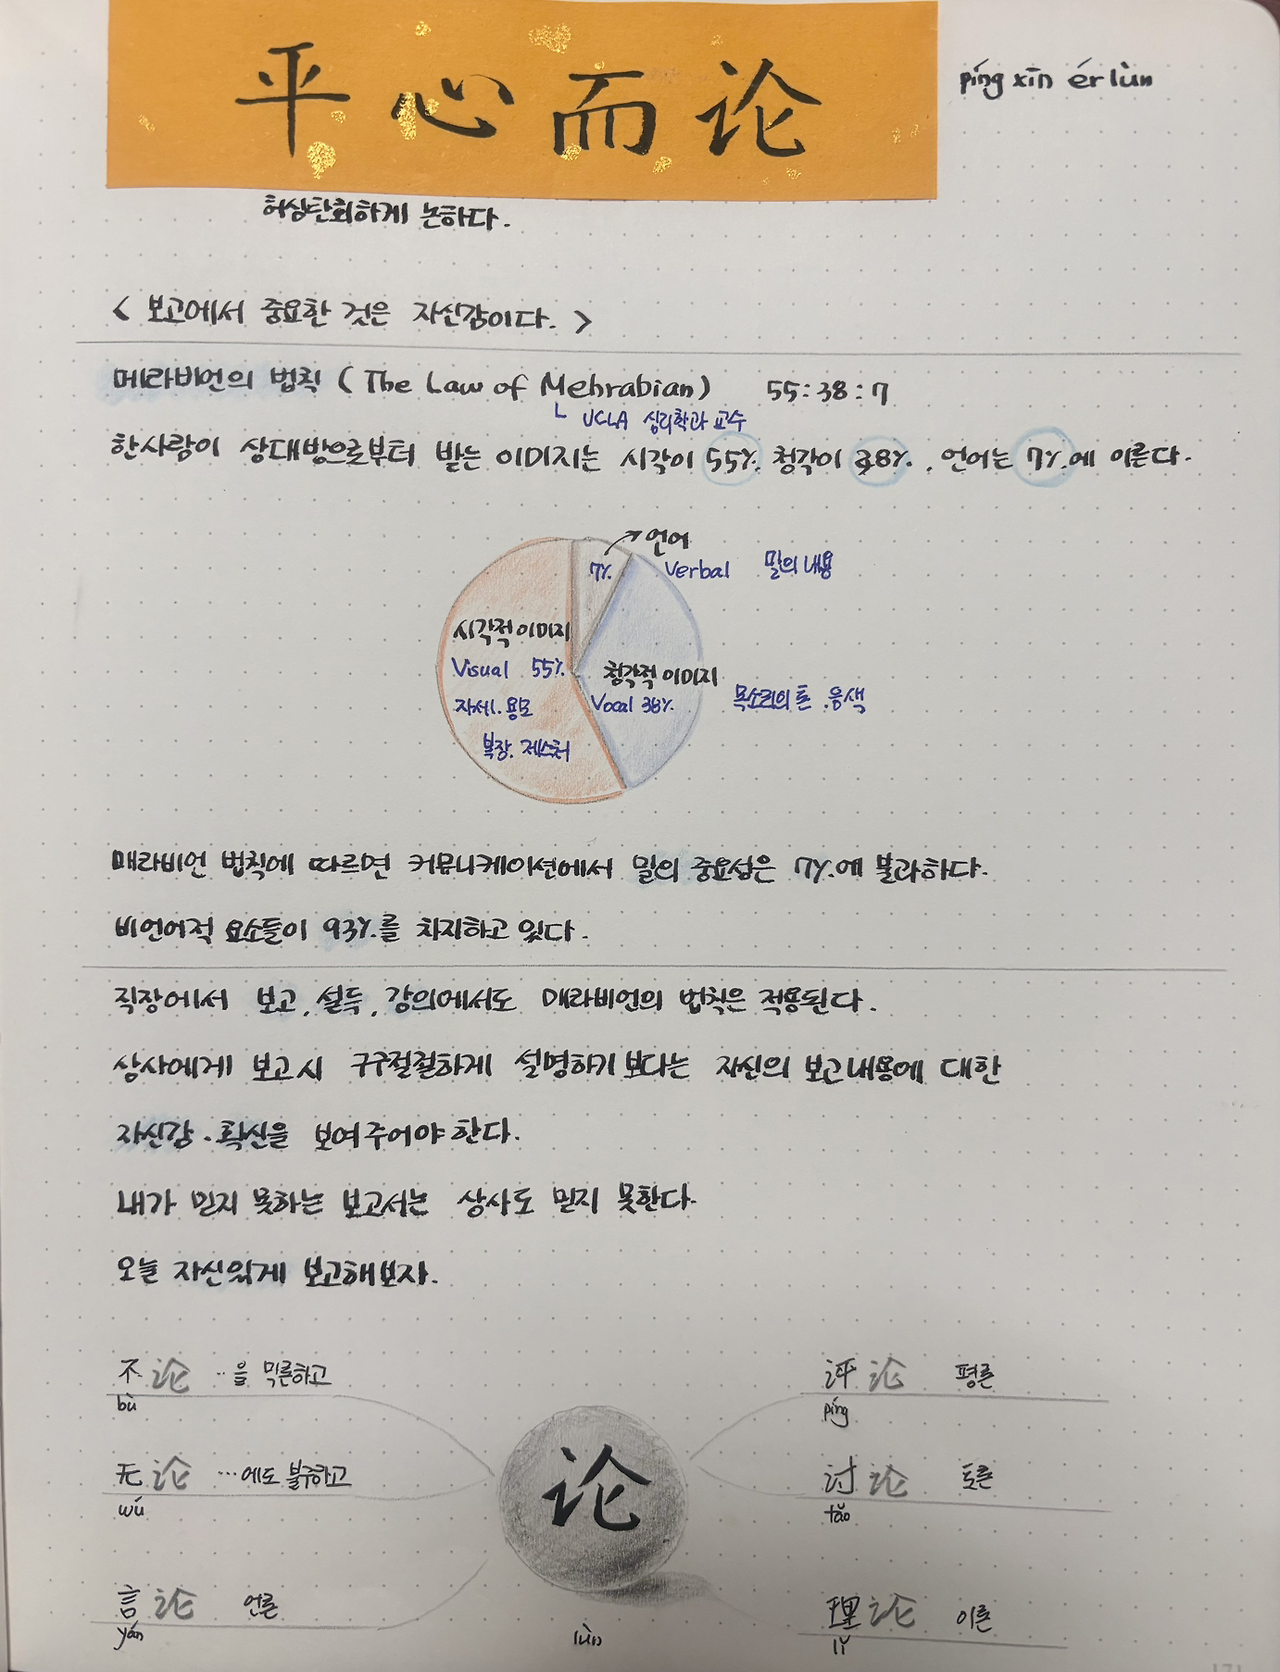 平心而论
píng xīn ér lùn
허심탄회하게 논하다.
< 보고에서 중요한 것은 자신감이다. >
메라비언의 법칙 ( The Law of Mehrabian) 55:38:7
└ UCLA 심리학과 교수
한사람이 상대방으로부터 받는 이미지는 시각이 55%, 청각이 38%, 언어는 7%에 이른다.
언어
7%
Verbal 말의 내용
시각적 이미지
Visual 55%
자세. 용모
복장. 제스처
청각적 이미지
Vocal 38%
목소리의 톤. 음색
메라비언 법칙에 따르면 커뮤니케이션에서 말의 중요성은 7%에 불과하다.
비언어적 요소들이 93%를 차지하고 있다.
직장에서 보고, 설득, 강의에서도 메라비언의 법칙은 적용된다.
상사에게 보고시 구구절절하게 설명하기 보다는 자신의 보고내용에 대한
자신감. 확신을 보여주어야 한다.
내가 믿지 못하는 보고서는 상사도 믿지 못한다.
오늘 자신있게 보고해보자.
不论 …을 막론하고
bù
无论 …에도 불구하고
wú
言论 언론
yán
论
lùn
评论 평론
píng
讨论 토론
tǎo
理论 이론
lǐ
171